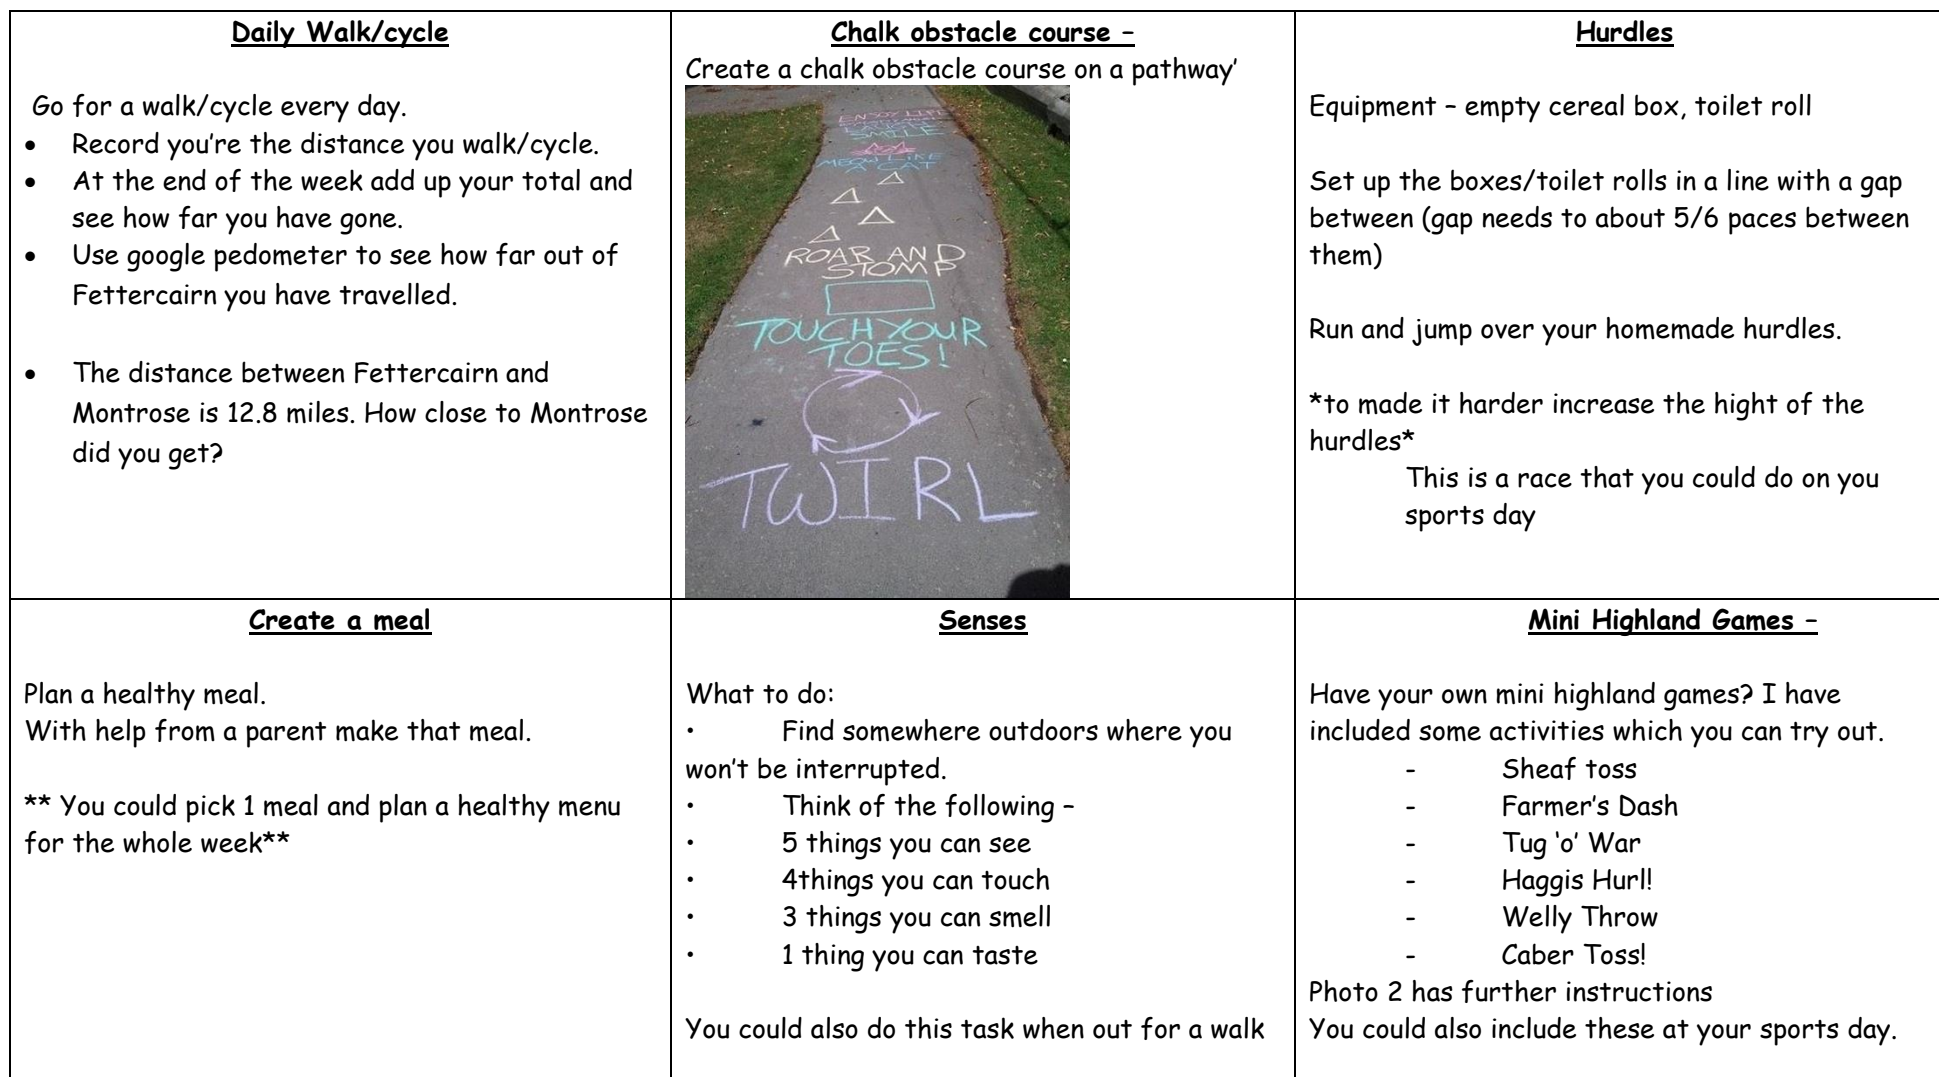 Daily Walk/cycle
Go for a walk/cycle every day.
• Record you're the distance you walk/cycle.
• At the end of the week add up your total and
see how far you have gone.
• Use google pedometer to see how far out of
Fettercairn you have travelled.
• The distance between Fettercairn and
Montrose is 12.8 miles. How close to Montrose
did you get?
Chalk obstacle course –
Create a chalk obstacle course on a pathway’
ENJOY LIFE
SMILE
MEOW LIKE
A CAT
ROAR AND
STOMP
TOUCH YOUR
TOES!
TWIRL
Hurdles
Equipment – empty cereal box, toilet roll
Set up the boxes/toilet rolls in a line with a gap
between (gap needs to about 5/6 paces between
them)
Run and jump over your homemade hurdles.
*to made it harder increase the hight of the
hurdles*
This is a race that you could do on you
sports day
Create a meal
Plan a healthy meal.
With help from a parent make that meal.
** You could pick 1 meal and plan a healthy menu
for the whole week**
Senses
What to do:
• Find somewhere outdoors where you
won’t be interrupted.
• Think of the following –
• 5 things you can see
• 4things you can touch
• 3 things you can smell
• 1 thing you can taste
You could also do this task when out for a walk
Mini Highland Games –
Have your own mini highland games? I have
included some activities which you can try out.
- Sheaf toss
- Farmer’s Dash
- Tug ‘o’ War
- Haggis Hurl!
- Welly Throw
- Caber Toss!
Photo 2 has further instructions
You could also include these at your sports day.